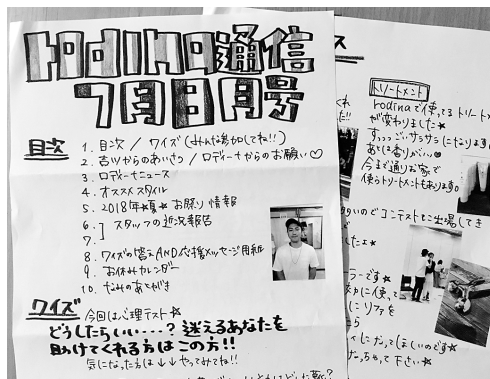 rodina通信
7月8月号
目次
1. 目次 / クイズ (みんな参加してね!!)
2. 古ツからのあいさつ / ロディーナからのお願い♡
3. ロディーナニュース
4. オススメスタイル
5. 2018年★夏★お祭り情報
6. ] スタッフの近況報告
7. ]
8. クイズの答えAND応援メッセージ用紙
9. お休みカレンダー
10. なみのあとがき
クイズ 今回は心理テスト☆
どうしたらいい・・・・? 迷えるあなたを
助けてくれる方はこの方!!
気になった方は↓↓やってみてね!!
ス
トリートメント
rodinaで使ってるトリートメ
が変わりました★
すっっごいサラサラになります
あとは香りがいい♡
今まで通りお家で
使うトリートメントもあります。
のでコンテストに出場してき
ラーです☆
に使って
にリフを
になってほしいのです
ちゃって下さい☆